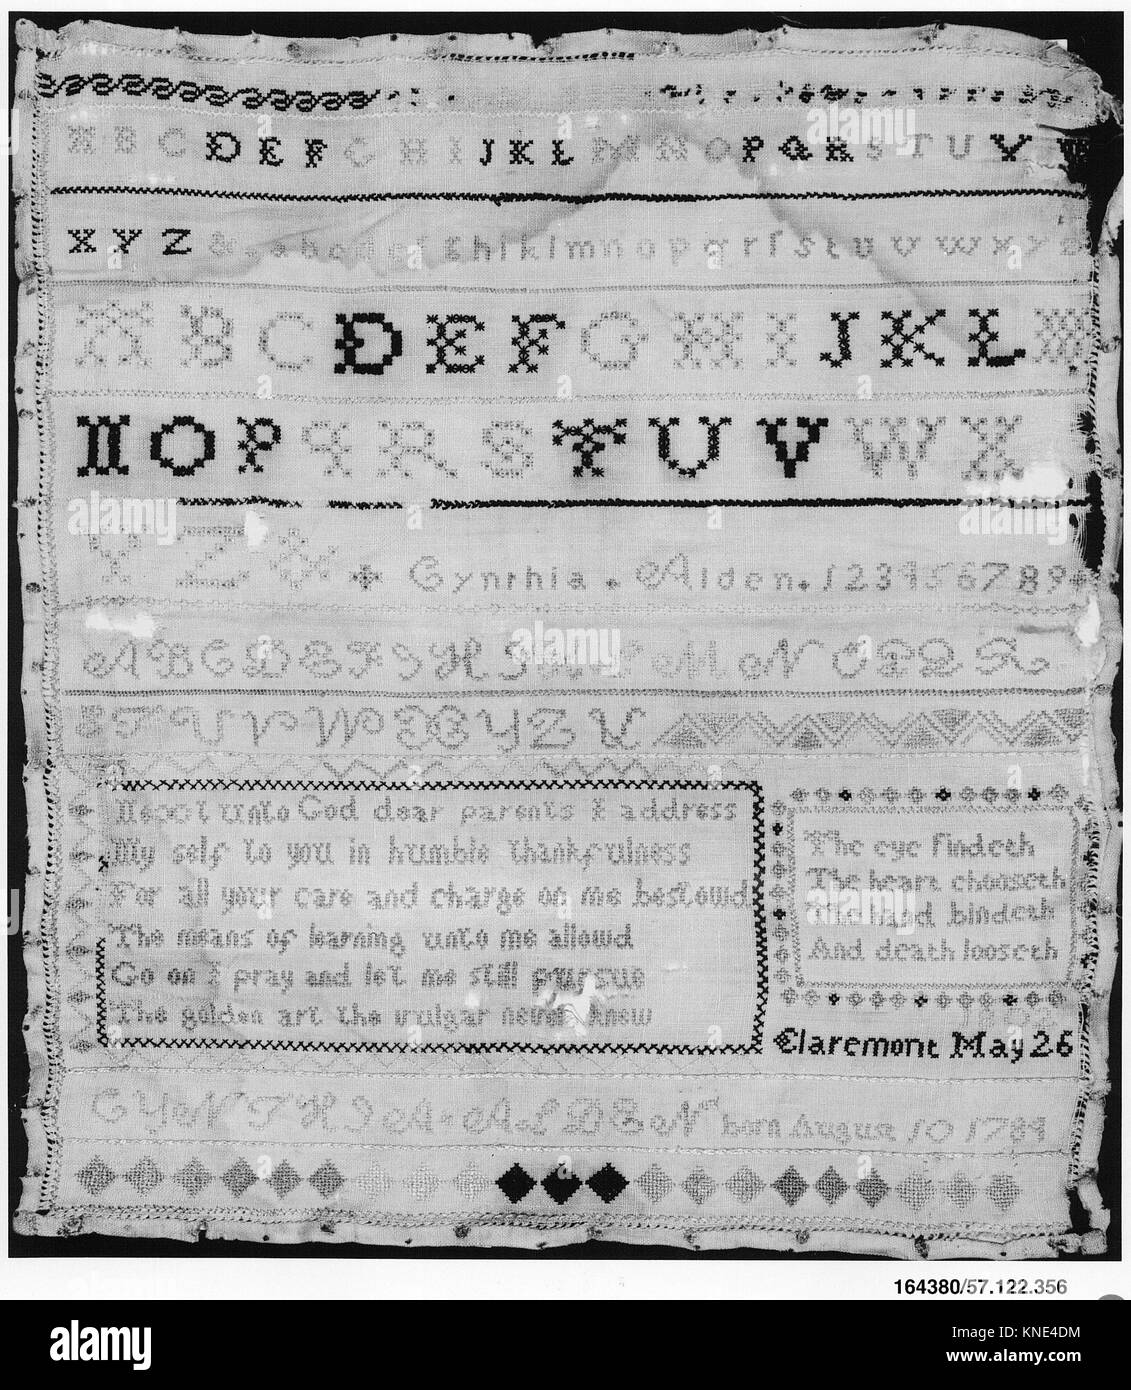 A B C D E F G H I J K L M N O P Q R S T U V W
X Y Z & a b c d e f g h i k l m n o p q r ſ s t u v w x y z
A B C D E F G H I J K L M
N O P Q R S T U V W X
Y Z & Cynthia . Alden . 1 2 3 4 5 6 7 8 9
A B C D E F G H I K L M N O P Q R
S T U V W X Y Z &
Next unto God dear parents I address
My self to you in humble thankfulness
For all your care and charge on me bestowd
The means of learning unto me allowd
Go on I pray and let me still pursue
The golden art the vulgar never knew
The eye findeth
The heart chooseth
The hand bindeth
And death looseth
Claremont May 26
CYNTHIA ALDEN born August 10 1784
164380/57.122.356
alamy
Image ID: KNE4DM
www.alamy.com